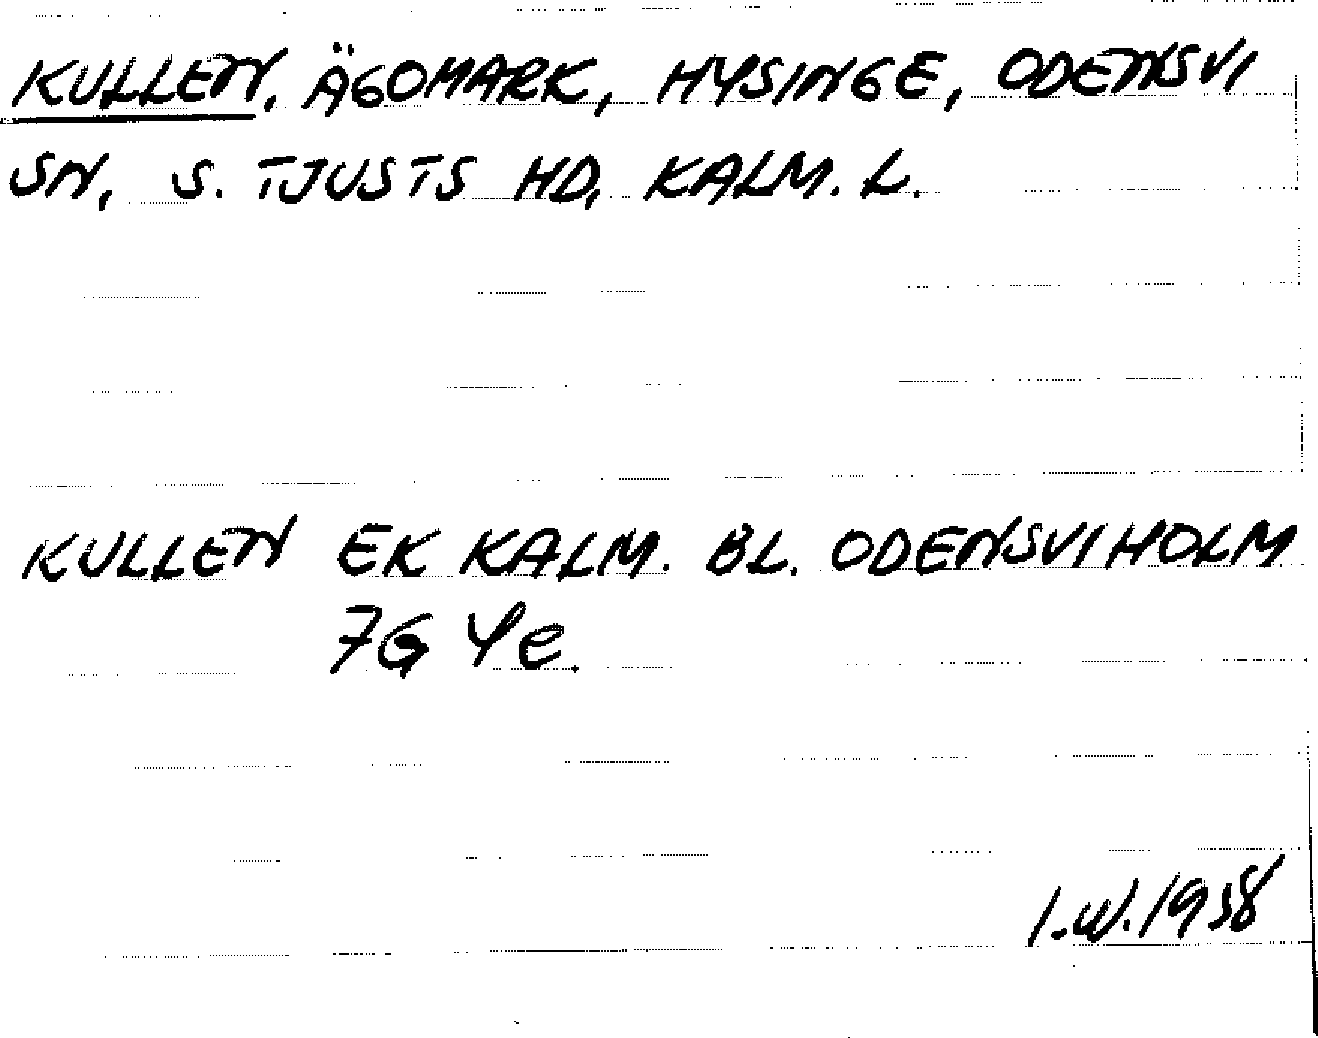 KULLEN, ÄGOMARK, HYSINGE, ODENSVI
SN, S. TJUSTS HD, KALM. L.
KULLEN EK KALM. BL. ODENSVIHOLM
7G 4e.
I.W. 1958